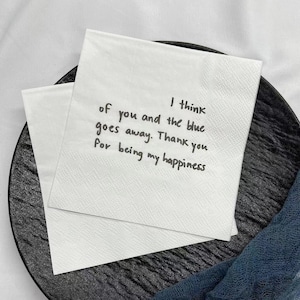 I think
of you and the blue
goes away. Thank you
for being my happiness